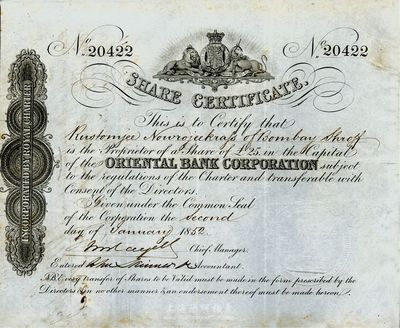 No. 20422
No. 20422
SHARE CERTIFICATE.
INCORPORATED BY ROYAL CHARTER
This is to Certify that
of Bombay Shroff
is the Proprietor of a Share of £25. in the Capital
of the ORIENTAL BANK CORPORATION subject
to the regulations of the Charter and transferable with
Consent of the Directors.
Given under the Common Seal
of the Corporation the Second
day of January 1852
Chief Manager.
Entered Accountant.
N.B. Every transfer of Shares to be Valid must be made in the form prescribed by the
Directors & in no other manner & an endorsement thereof must be made hereon.